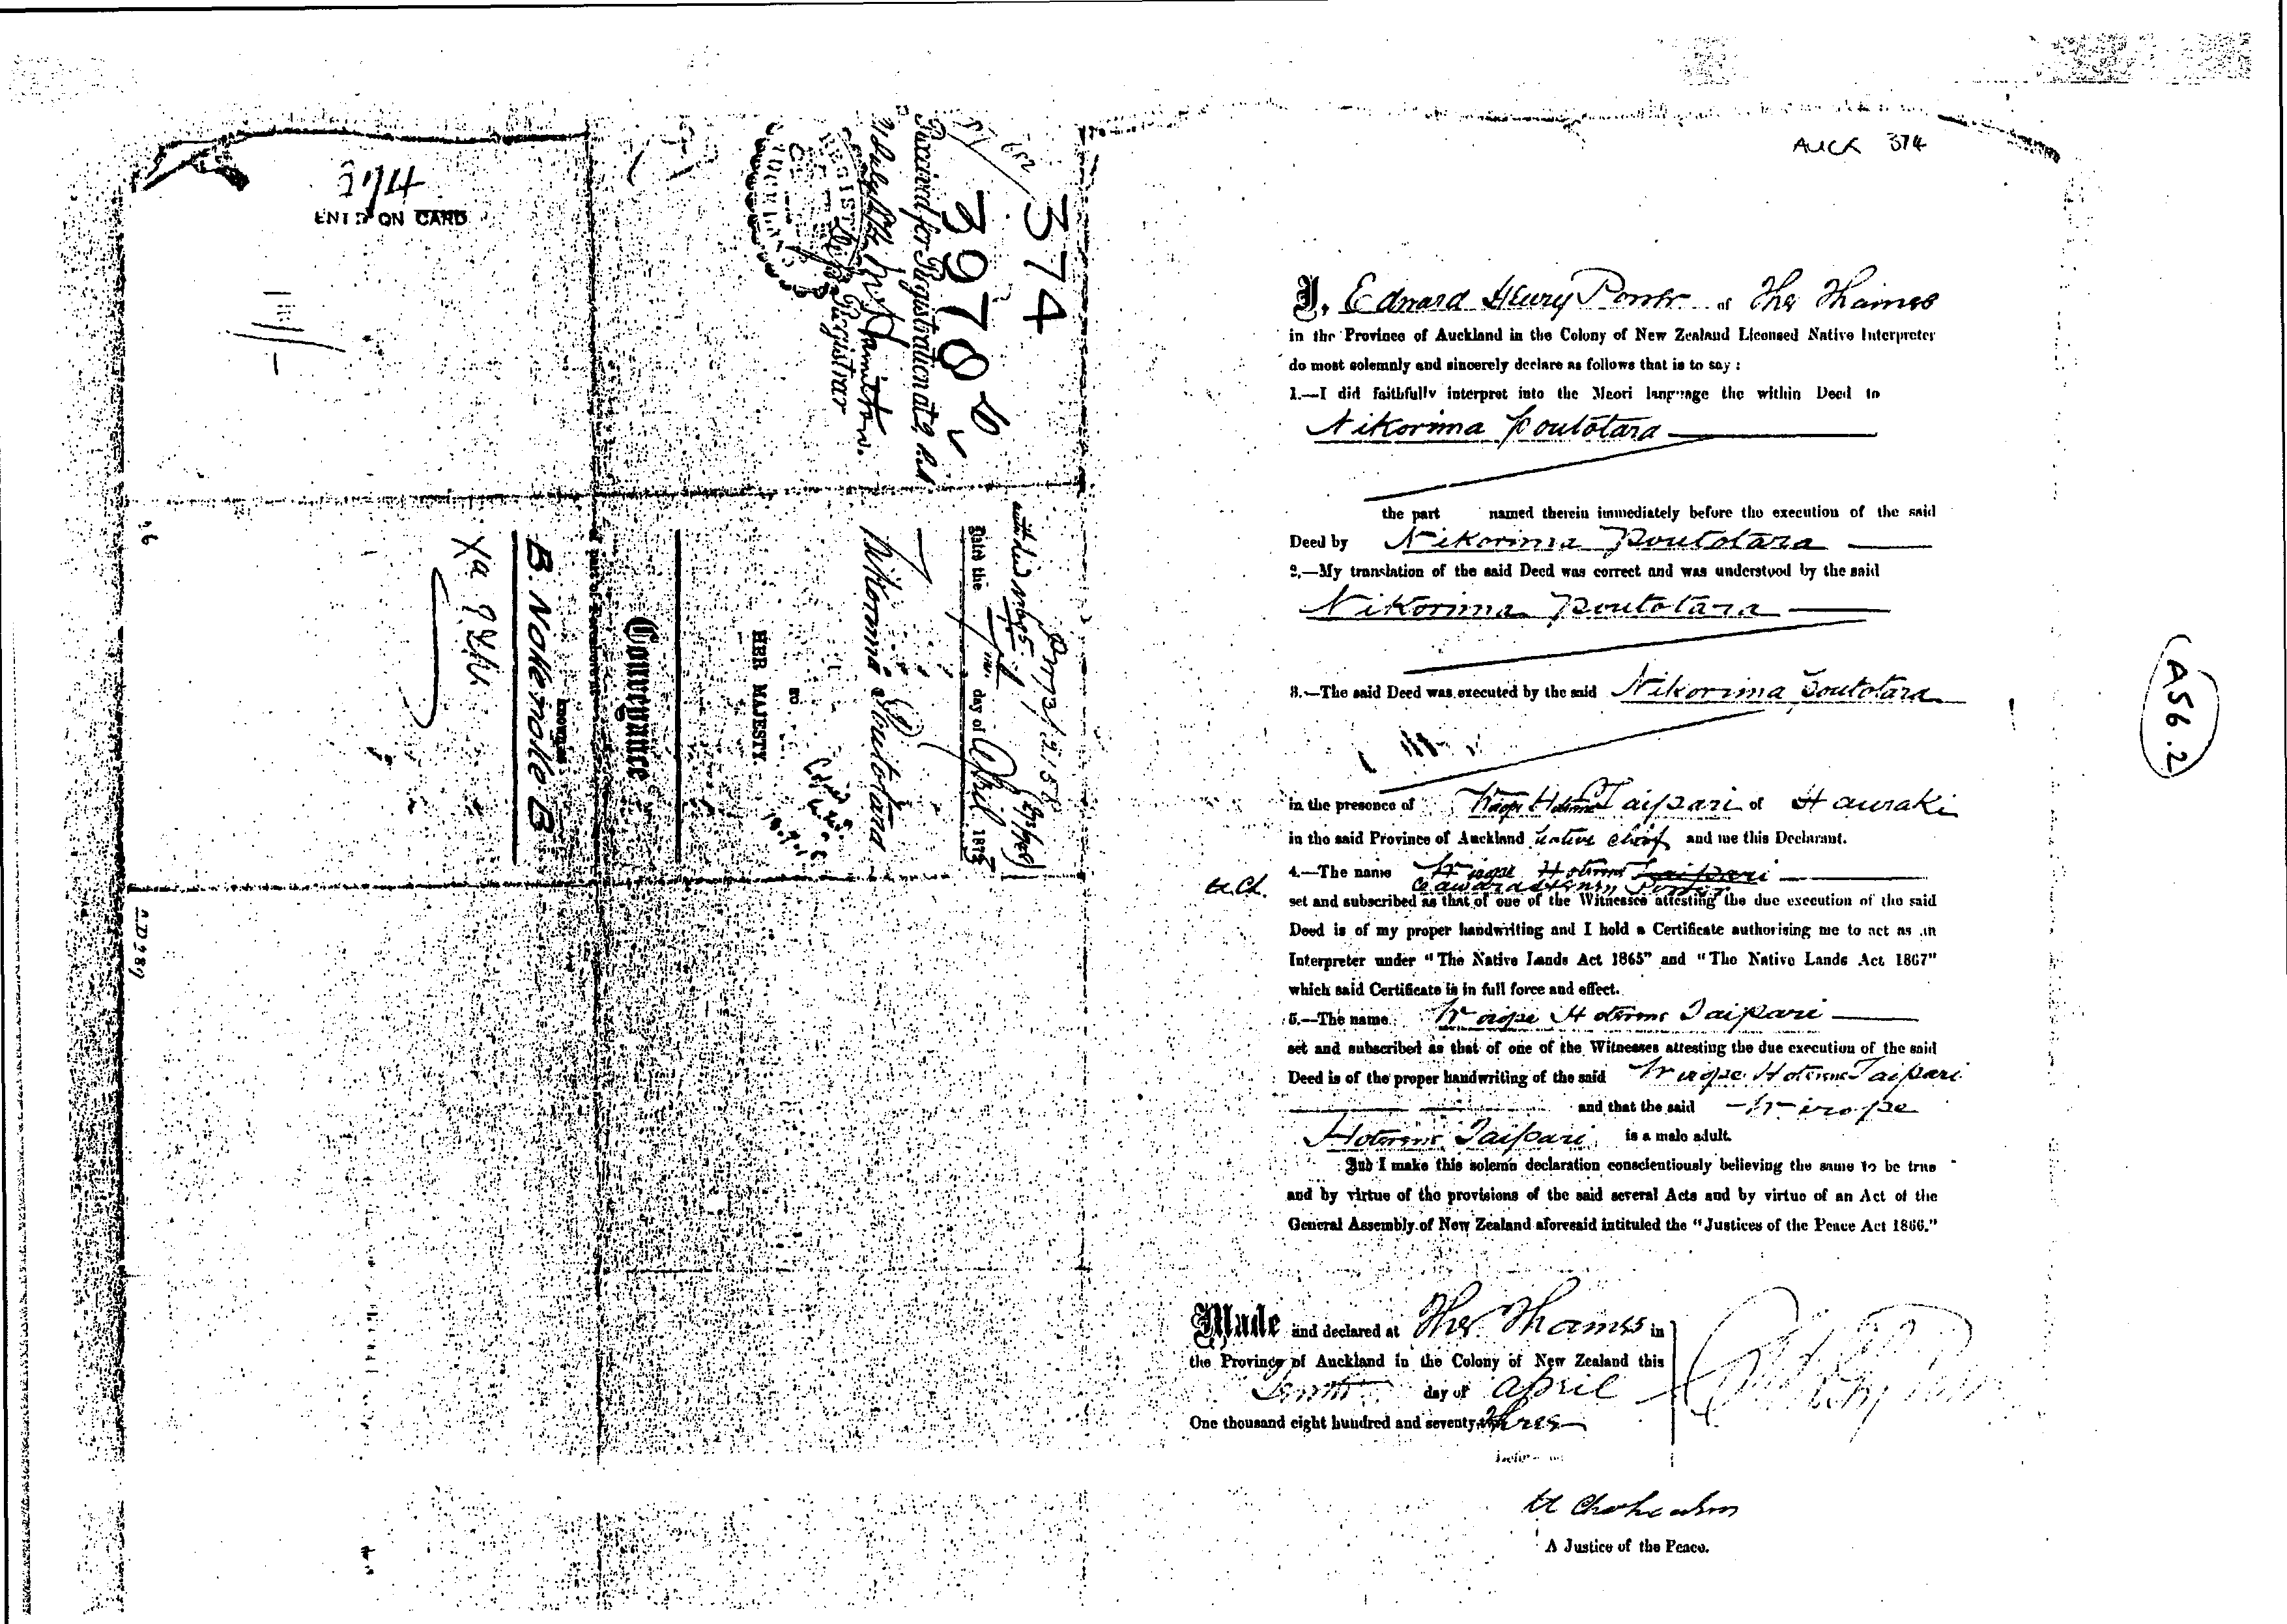 AUCK 374
374
ENTD ON CARD
374
39786
Received for Registration at 2
Registrar
Dated the day of April 1873
Nikorima Poutotara
TO
HER MAJESTY
Conveyance
KNOWN AS
B. Nokenoke B
A56.2
I, Edward Henry Power of The Thames
in the Province of Auckland in the Colony of New Zealand Licensed Native Interpreter
do most solemnly and sincerely declare as follows that is to say :
1.—I did faithfully interpret into the Maori language the within Deed to
Nikorima Poutotara
the part named therein immediately before the execution of the said
Deed by Nikorima Poutotara
2.—My translation of the said Deed was correct and was understood by the said
Nikorima Poutotara
3.—The said Deed was executed by the said Nikorima Poutotara
in the presence of Wirope Hoterene Taipari of Hauraki
in the said Province of Auckland native chief and me this Declarant.
4.—The name Wirope Hoterene Taipari
Edward Henry Power
set and subscribed as that of one of the Witnesses attesting the due execution of the said
Deed is of my proper handwriting and I hold a Certificate authorising me to act as an
Interpreter under "The Native Lands Act 1865" and "The Native Lands Act 1867"
which said Certificate is in full force and effect.
5.—The name Wirope Hoterene Taipari
set and subscribed as that of one of the Witnesses attesting the due execution of the said
Deed is of the proper handwriting of the said Wirope Hoterene Taipari
and that the said Wirope
Hoterene Taipari is a male adult.
And I make this solemn declaration conscientiously believing the same to be true
and by virtue of the provisions of the said several Acts and by virtue of an Act of the
General Assembly of New Zealand aforesaid intituled the "Justices of the Peace Act 1866."
Made and declared at The Thames in
the Province of Auckland in the Colony of New Zealand this
Tenth day of April
One thousand eight hundred and seventy three
before me
A Justice of the Peace.